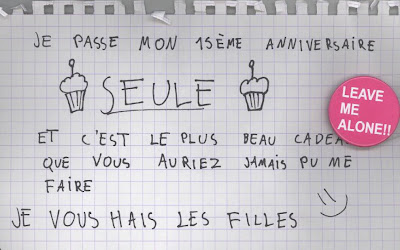 JE PASSE MON 15ÈME ANNIVERSAIRE
SEULE
ET C'EST LE PLUS BEAU CADEA
QUE VOUS AURIEZ JAMAIS PU ME
FAIRE
JE VOUS HAIS LES FILLES
LEAVE
ME
ALONE!!